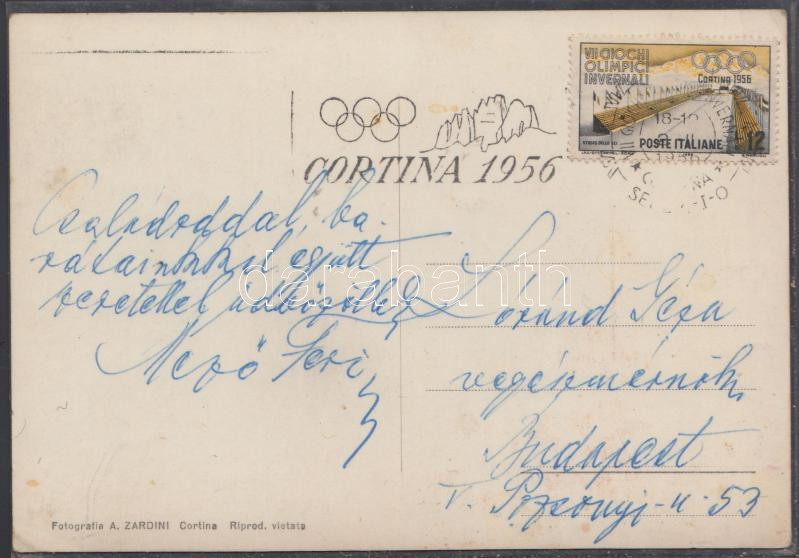 VII GIOCHI
OLIMPICI
INVERNALI
CORTINA 1956
STADIO DELLO SCI
POSTE ITALIANE 12
18-19
CORTINA 1956
Családoddal, ba-
rátainkkal együtt
szeretettel üdvözöl
Mező Feri
Lóránd Géza
vegyészmérnök
Budapest
V. Pozsonyi-u. 53
darabanth
Fotografia A. ZARDINI Cortina Riprod. vietata